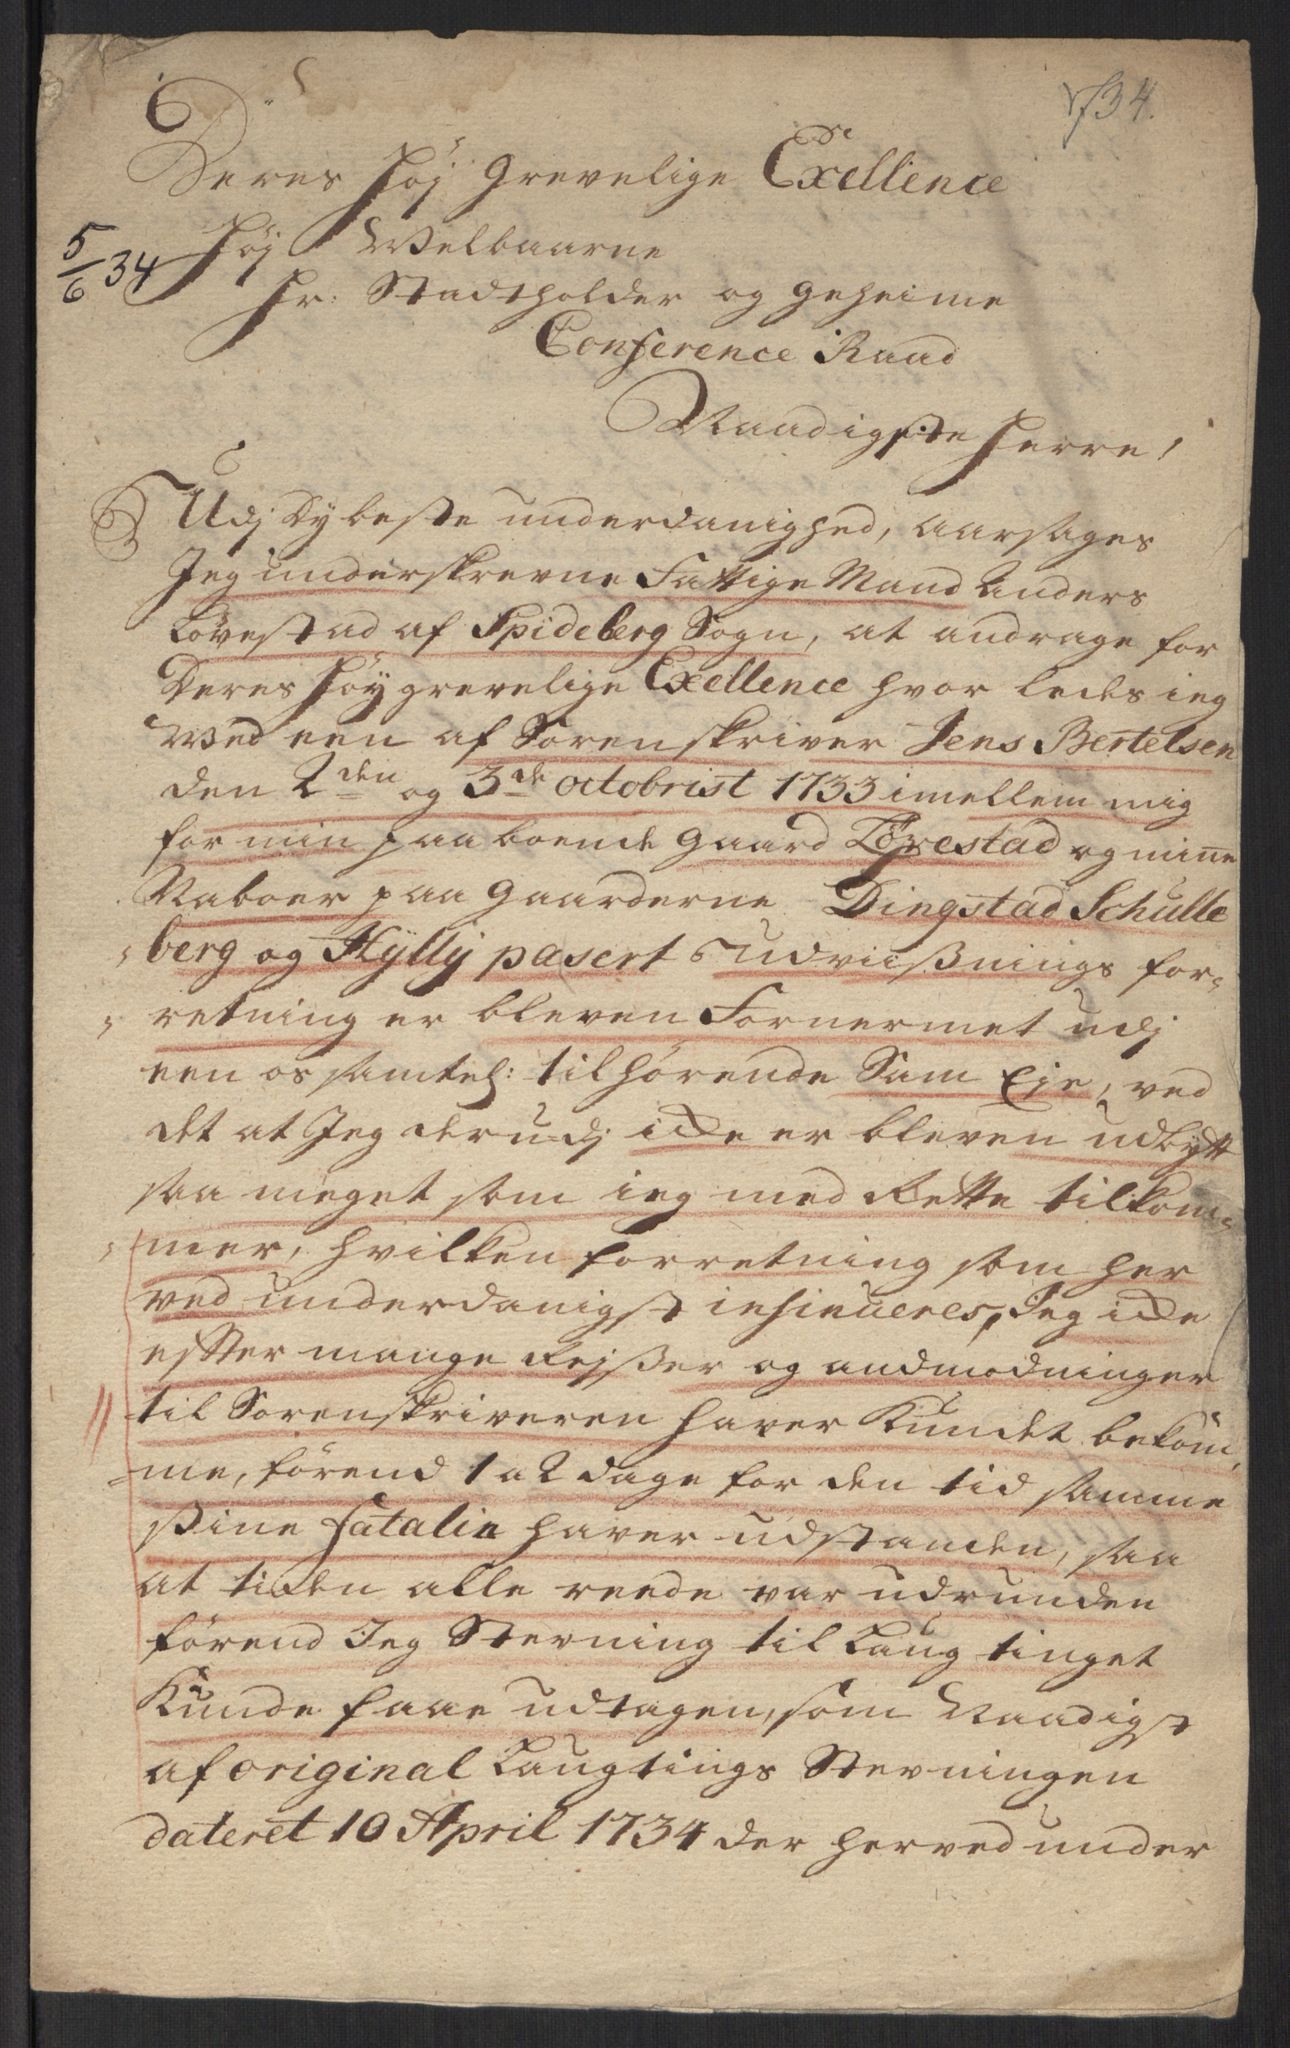 734.
Deres Høj Grevelige Exellence
5/6 34
Høj Welbaarne
Hr: Stadtholder og Geheime
Conference Raad
Naadigste Herre!
Udj dybeste underdanighed, aarsages
Jeg underskrevne Fattige Mand Anders
Løvestad af Spideberg Sogn, at andrage for
Deres Høygrevelige Exellence hvor ledes ieg
Wed een af Sorenskriver Jens Bertelsen
den 2den og 3de octobrist 1733 imellem mig
for min paaboende Gaard Løvestad og mine
Naboer paa Gaarderne Dingstad Schulle
berg og Hylly pasert Udviißnings for-
retning er bleven Fornermet udj
een os samtel: tilhørende Sam Eje, ved
det at Jeg derudj icke er bleven udbytt
saa meget som ieg med Rette tilkom-
mer, hvilken forretning som her
ved underdanigst insinueres, Jeg icke
efter mange Rejßer og andmodninger
til Sorenskriveren haver Kundet bekom
me, førend 1 a 2 dage for den tid samme
sine fatalia haver udstanden, saa
at tiden alle reede var udrunden
førend Jeg Stevning til Laugtinget
Kunde faae udtagen, som Naadigst
af original Laugtings Stevningen
dateret 10 April 1734 der herved under